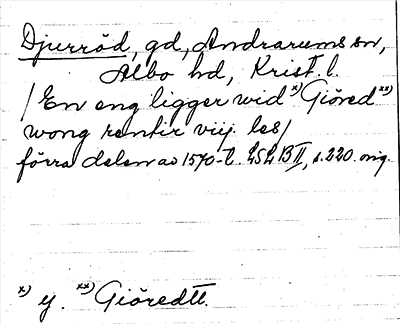 Djurröd, gd, Andrarums sn,
Albo hd, Krist. l.
/ En eng ligger wid x) Giöred xx)
wong rentir viij. les /
förra delen av 1570-t. LSL B II, s. 220. orig.
x) y. xx) Giöredtt.